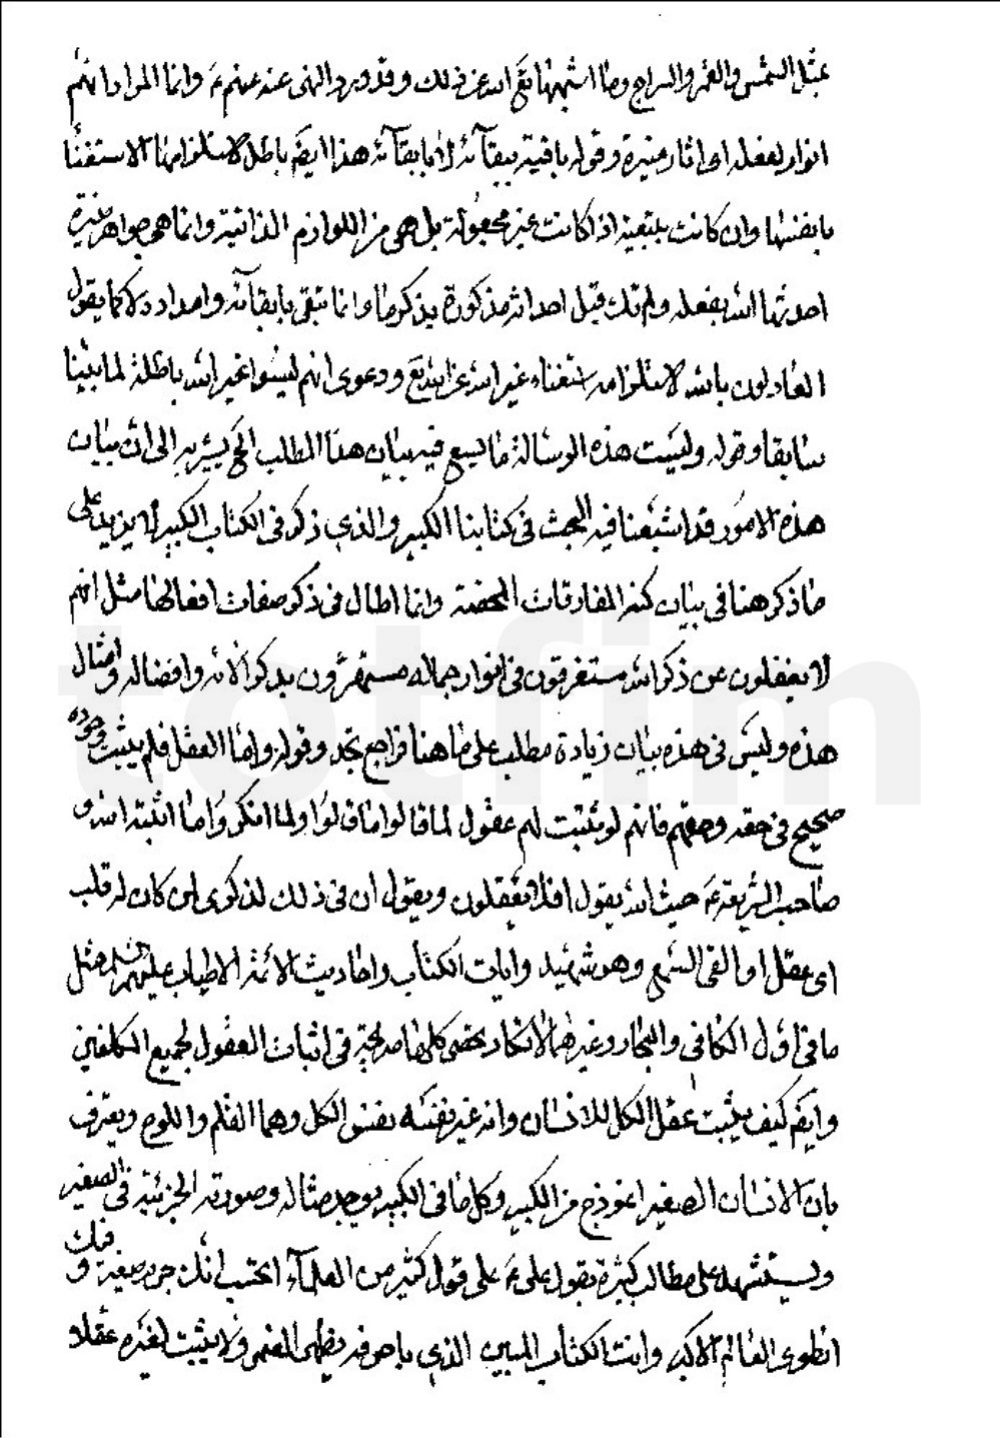 بمثل الشمس والقمر والسراج وما اشبهها تع الله عن ذلك وقد ورد النهى عنه عنهم ع وانما المراد انهم
انوار لفعله اى اثار منيرة وقوله باقية ببقآئه لا بابقآئه هذا ايضم باطل لاستلزامها الاستغنا
بانفسها وان كانت بتبعية اذا كانت غير مجعولة بل هى من اللوازم الذاتية وانما هى جواهر منيرة
احدثها الله بفعله ولم تك قبل احداثه مذكورة بذكر ما وانما تبقى بابقآئه وامداده لا كما يقول
العادلون بالله لاستلزامه استغناء غير الله عن الله تع ودعوى انهم ليسوا غير الله باطلة لما بيّنا
سابقا وقوله وليست هذه الرسالة مما يسع فيه بيان هذا المطلب الخ يشير به الى ان بيان
هذه الامور قد اشبعنا فيه البحث فى كتابنا الكبير والذى ذكر فى الكتاب الكبير لا يزيد على
ما ذكر هنا فى بيان كنه المفارقات المحضة وانما اطال فى ذكر صفات افعالها مثل انهم
لا يغفلون عن ذكر الله مستغرقون فى انوار جماله مستهترون بذكر آلائه وافضاله وامثال
هذه وليس فى هذه بيان زيادة مطلب على ما هنا فراجع تجد وقوله واما العقل فلم يثبت وجوده
صحيح فى حقه وحقهم فانهم لو ثبتت لهم عقول لما قالوا ما قالوا ولما انكروا ما اثبته الله و
صاحب الشريعة ع حيث الله يقول افلا تعقلون ويقول ان فى ذلك لذكرى لمن كان له قلب
اى عقل او القى السمع وهو شهيد وايات الكتاب واحاديث الائمة الاطياب عليهم السلم مثل
ما فى اول الكافى والبحار وغيرهما لا تكاد تحصى كلها صريحة فى اثبات العقول لجميع المكلفين
وايضم كيف يثبت عقل الكل للانسان وانه غير نفسه نفس الكل وهما القلم واللوح ويعترف
بان الانسان الصغير انموذج من الكبير وكل ما فى الكبير يوجد مثاله وصورته الجزئية فى الصغير
ويستشهد على مطالب كثيرة بقول على ع على قول كثير من العلمآء اتحسب انك جرم صغير وفيك
انطوى العالم الاكبر وانت الكتاب المبين الذى باحرفه يظهر المضمر ولا يثبت لغيره عقلا